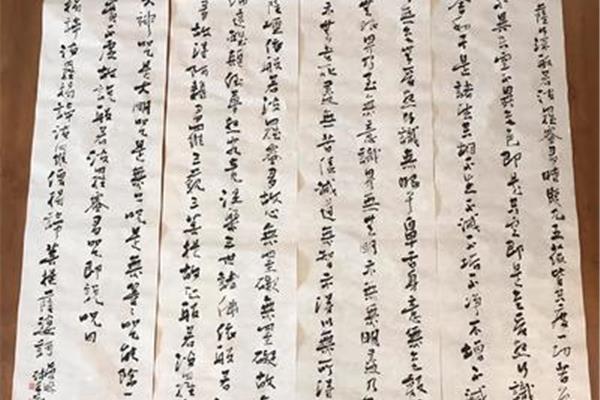 薩行深般若波羅蜜多時照見五蘊皆空度一切苦
異空空不異色即是空空即是色受想行識
是諸法空相不生不滅不垢不淨不增不減
無色無受想行識無眼耳鼻舌身意無色聲
界乃至無意識界無無明亦無無明盡乃
亦無老死盡無苦集滅道無智亦無得以無所得
薩埵依般若波羅蜜多故心無罣礙無罣礙故
遠離顛倒夢想究竟涅槃三世諸佛依般若
多故得阿耨多羅三藐三菩提故知般若波羅
大神咒是大明咒是無上咒是無等等咒能除一
實不虛故說般若波羅蜜多咒即說咒曰
揭諦波羅揭諦波羅僧揭諦菩提薩婆訶